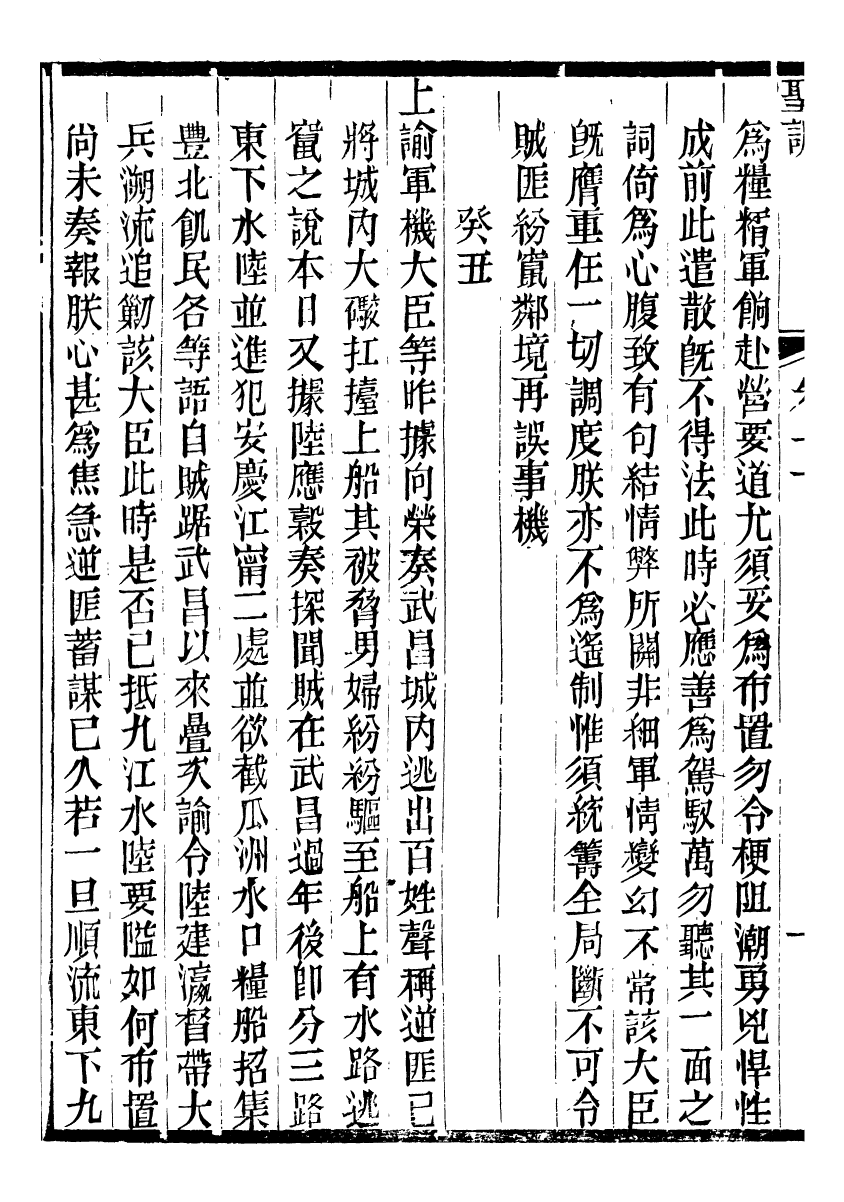 聖訓
為糧糈軍餉赴營要道尤須妥為布置勿令梗阻潮勇兇悍性
成前此遣散旣不得法此時必應善為駕馭萬勿聽其一面之
詞倚為心腹致有勾結情弊所關非細軍情變幻不常該大臣
旣膺重任一切調度朕亦不為遙制惟須統籌全局斷不可令
賊匪紛竄鄰境再誤事機
癸丑
上諭軍機大臣等昨據向榮奏武昌城內逃出百姓聲稱逆匪已
將城內大礮扛擡上船其被脅男婦紛紛驅至船上有水路逃
竄之說本日又據陸應穀奏探聞賊在武昌過年後卽分三路
東下水陸並進犯安慶江甯二處並欲截瓜洲水口糧船招集
豐北飢民各等語自賊踞武昌以來疊次諭令陸建瀛督帶大
兵溯流追勦該大臣此時是否已抵九江水陸要隘如何布置
尚未奏報朕心甚為焦急逆匪蓄謀已久若一旦順流東下九